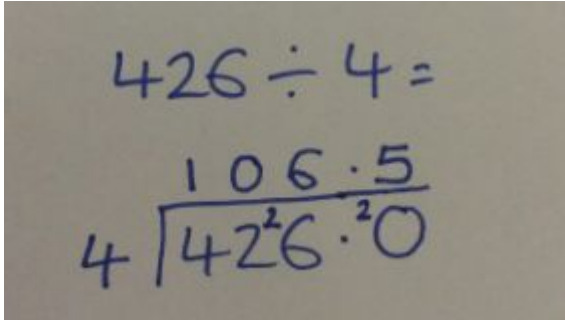 426 ÷ 4 =
106.5
4 426.0
2 2